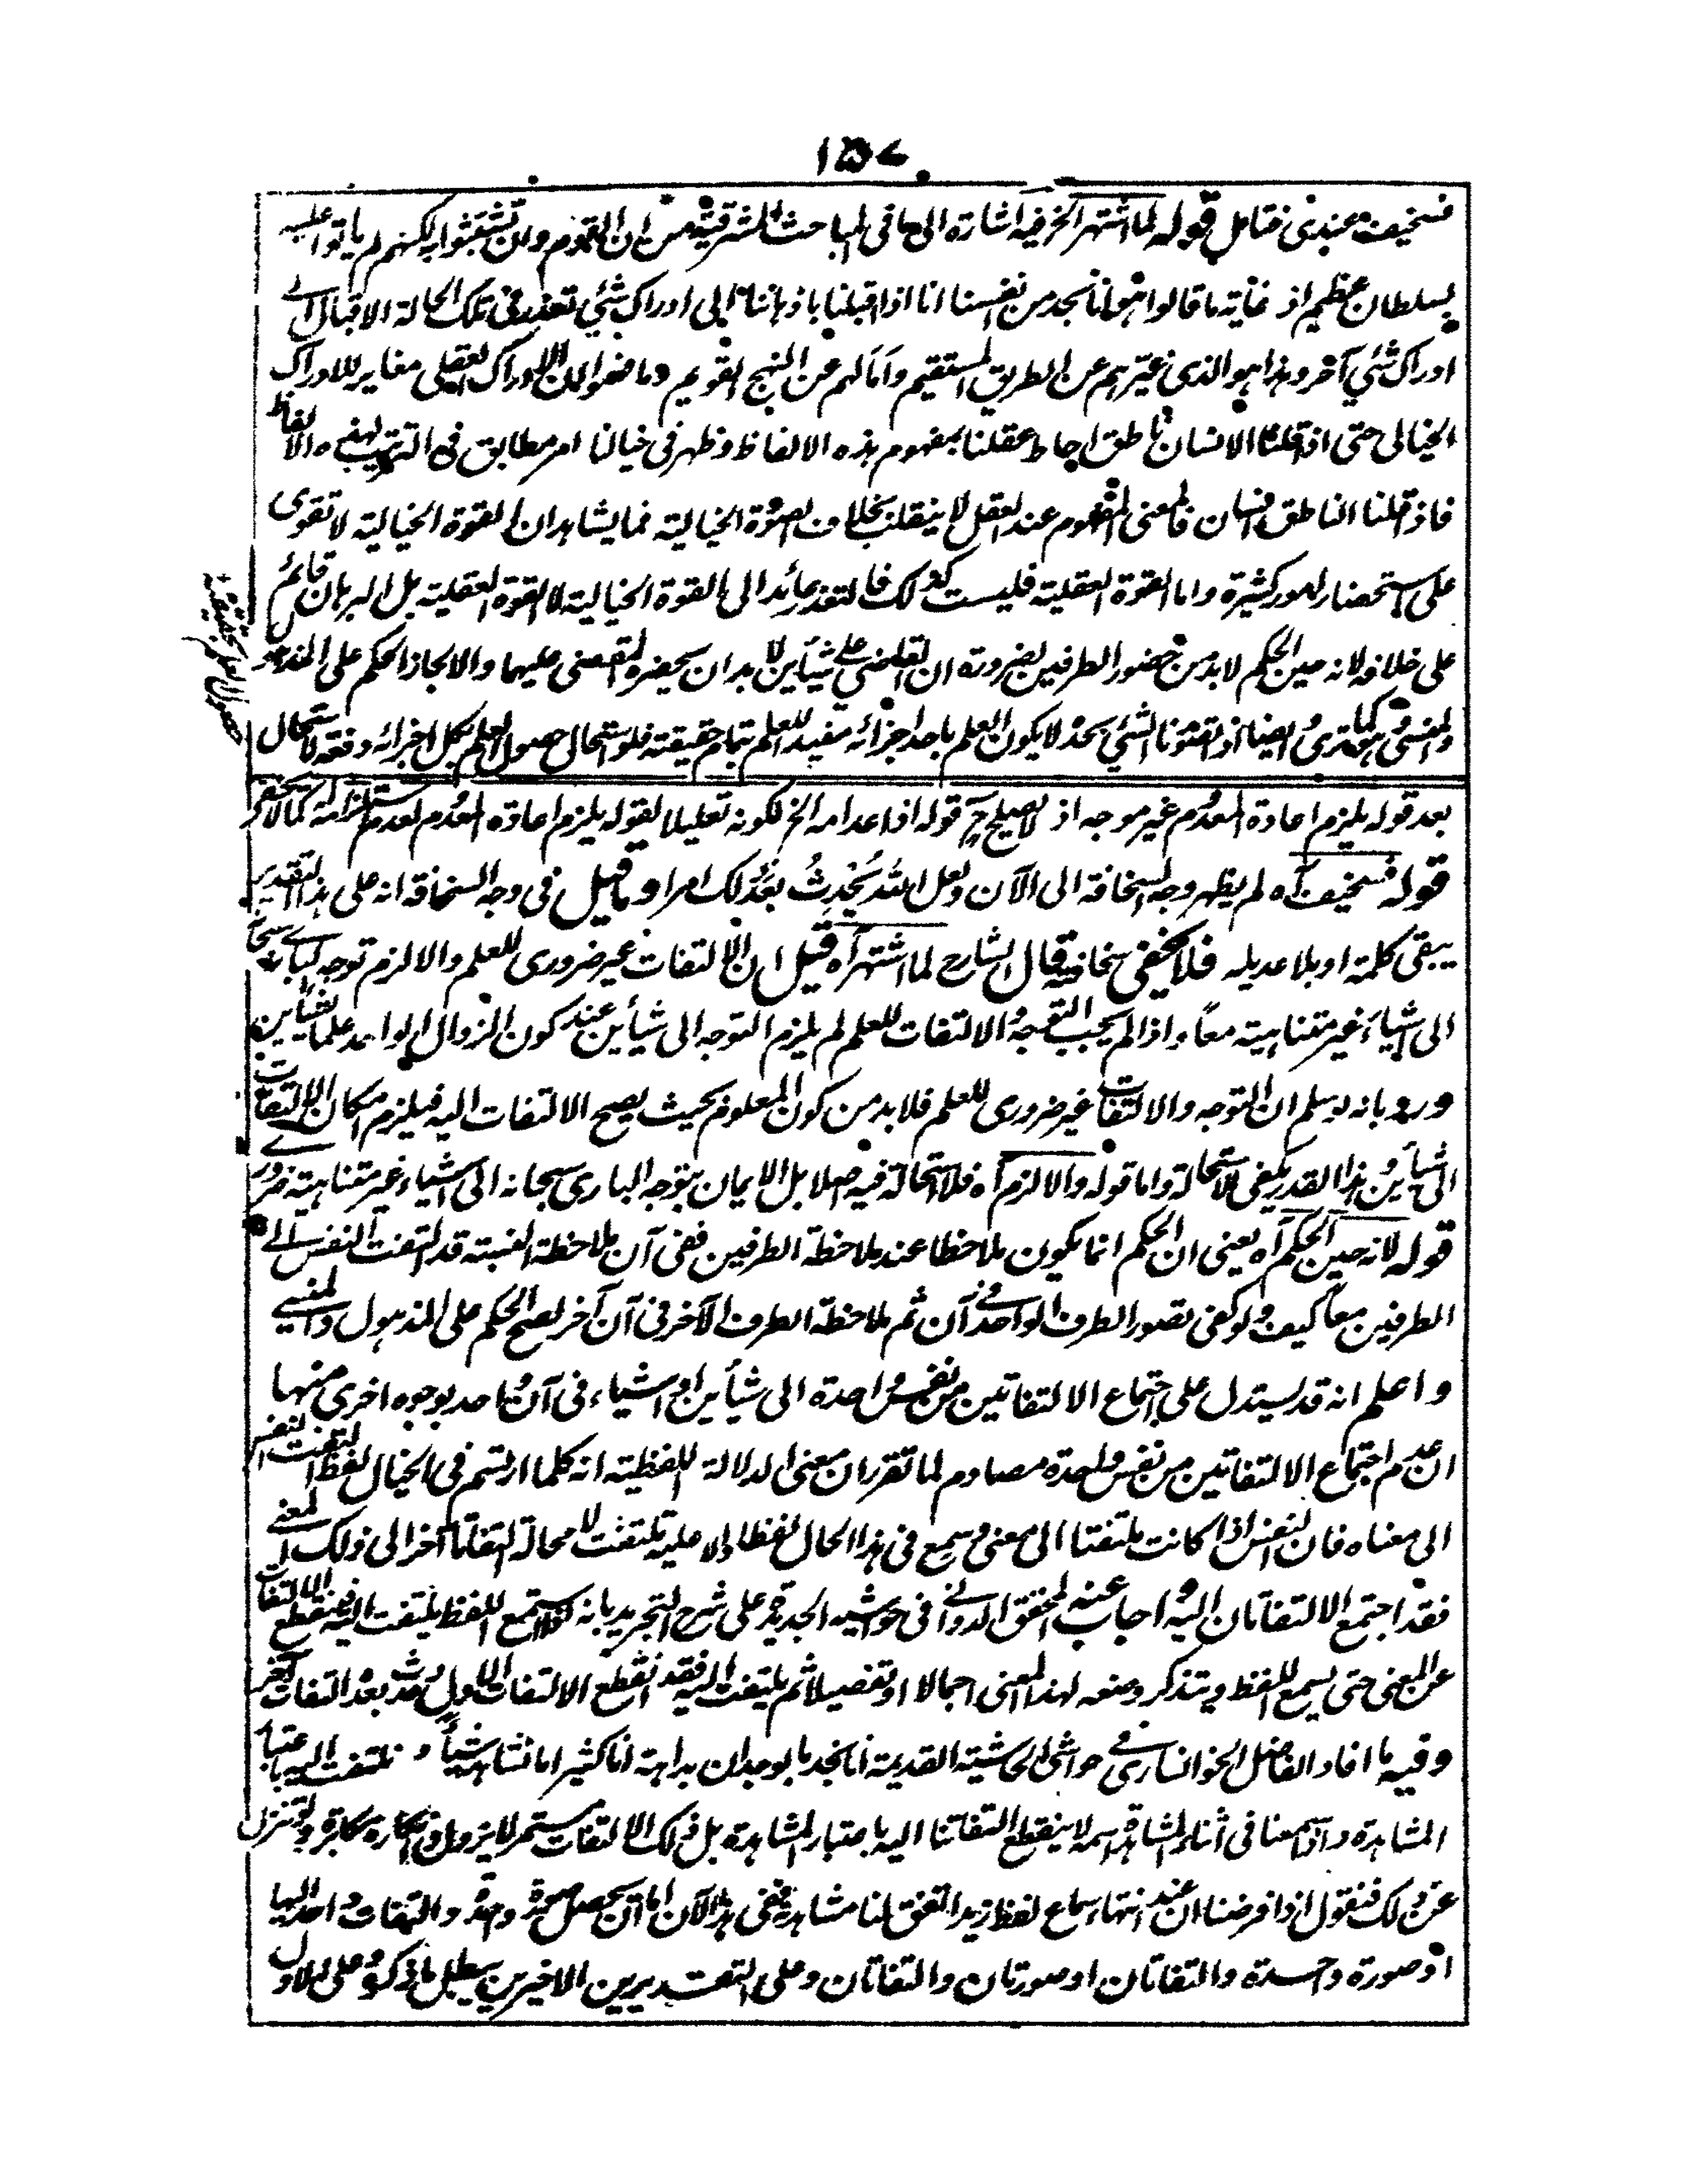 ١٥٧
فسخيف عندي فتامل قوله لما اشتهر الخ فيه اشارة الى ما في المباحث المشرقية من ان القوم وان تشبثوا به لكنهم لم ياتوا عليه
بسلطان عظيم اذ غاية ما قالوا هو انا نجد من نفسنا انا اذا اقبلنا باذهاننا الى ادراك شئ تعذر في تلك الحالة الاقبال الى
ادراك شئ آخر وهذا هو الذي غيرهم عن الطريق المستقيم وآمالهم عن المنهج القويم وما فهموا ان الادراك العقلي مغاير للادراك
الخيالي حتى اذا قلنا الانسان ناطق احاط عقلنا بمفهوم هذه الالفاظ وظهر في خيالنا امر مطابق في الترتيب لهذه الالفاظ
فاذا قلنا الناطق انسان فالمعنى المفهوم عند العقل لا ينقلب بخلاف الصورة الخيالية فما يشاهد ان القوة الخيالية لا تقوى
على استحضار امور كثيرة واما القوة العقلية فليست كذلك فالتعذر عائد الى القوة الخيالية لا القوة العقلية بل البرهان قائم
على خلافه لانه حين الحكم لا بد من حضور الطرفين ضرورة ان القاضي على شيأين لا بد ان يحضره المقضي عليهما والا لجاز الحكم على المذهول
والمنسي كما ترى وايضا اذا تصورنا الشئ بحده لا يكون العلم باحد اجزائه مفيد للعلم بتمام حقيقته فلو استحال حصول العلم بكل اجزائه دفعة لاستحال
حصول العلم بحقيقته
بعد قوله يلزم اعادة المعدوم غير موجه اذ لا يصلح ح قوله اذ اعدامه الخ لكونه تعليلا لقوله يلزم اعادة المعدوم لعدم استلزامه كما لا يخفى
قوله فسخيف آه لم يظهر وجه السخافة الى الآن ولعل الله يحدث بعد ذلك امرا وما قيل في وجه السخافة انه على هذا التقدير
يبقى كلمة او بلا عديله فلا يخفى سخافته قال الشارح لما اشتهر آه قيل ان الالتفات غير ضروري للعلم والا لزم توجه الباري سبحانه
الى اشياء غير متناهية معا واذا لم يجب التوجه والالتفات للعلم لم يلزم التوجه الى شيأين عند كون الزوال الواحد علما لشيأين
ورد بانه لو سلم ان التوجه والالتفات غير ضروري للعلم فلا بد من كون المعلوم بحيث يصح الالتفات اليه فيلزم امكان الالتفات
الى شيأين وهذا القدر يكفي للاستحالة واما قوله والا لزم آه فلا استحالة فيه اصلا بل الايمان بتوجه الباري سبحانه الى اشياء غير متناهية ضروري
قوله لانه حين الحكم آه يعني ان الحكم انما يكون ملاحظا عند ملاحظة الطرفين ففي آن ملاحظة النسبة قد التفت النفس الى
الطرفين معا كيف ولو كفى تصور الطرف الواحد في آن ثم ملاحظة الطرف الآخر في آن آخر لصح الحكم على المذهول والمنسي
واعلم انه قد يستدل على اجتماع الالتفاتين من نفس واحدة الى شيأين او اشياء في آن واحد بوجوه اخرى منها
ان عدم اجتماع الالتفاتين من نفس واحدة مصادم لما تقرر ان معنى الدلالة اللفظية انه كلما ارتسم في الخيال لفظ التفت النفس
الى معناه فان النفس اذا كانت ملتفتا الى معنى وسمع في هذا الحال لفظا دلا عليه تلتفت لا محالة التفاتا آخر الى ذلك المعنى
فقد اجتمع الالتفاتان اليه واجاب عنه المحقق الدواني في حواشيه الجديدة على شرح التجريد بانه اذا استمع اللفظ يلتفت اليه فينقطع الالتفات
عن المعنى حتى يسمع اللفظ ويتذكر وضعه لهذا المعنى اجمالا او تفصيلا ثم يلتفت اليه فقد انقطع الالتفات الاول وحدث بعد التفات آخر
وفيه ما افاد الفاضل الخوانساري في حواشي الحاشية القديمة انا نجد بالوجدان بداهة انا كثيرا ما نشاهد شيأ ونلتفت اليه باعتبار
المشاهدة واذا سمعنا في اثناء المشاهدة اسمه لا ينقطع التفاتنا اليه باعتبار المشاهدة بل ذلك الالتفات مستمر لا يزول وانكاره مكابرة ولو تنزل
عن ذلك فنقول اذا فرضنا ان عند انتهاء سماع لفظ زيد اتفق لنا مشاهدته ففي هذا الآن اما ان يحصل صورة واحدة والتفات واحد اليها
او صورة واحدة والتفاتان او صورتان والتفاتان وعلى التقديرين الاخيرين يبطل ما ذكره وعلى الاول